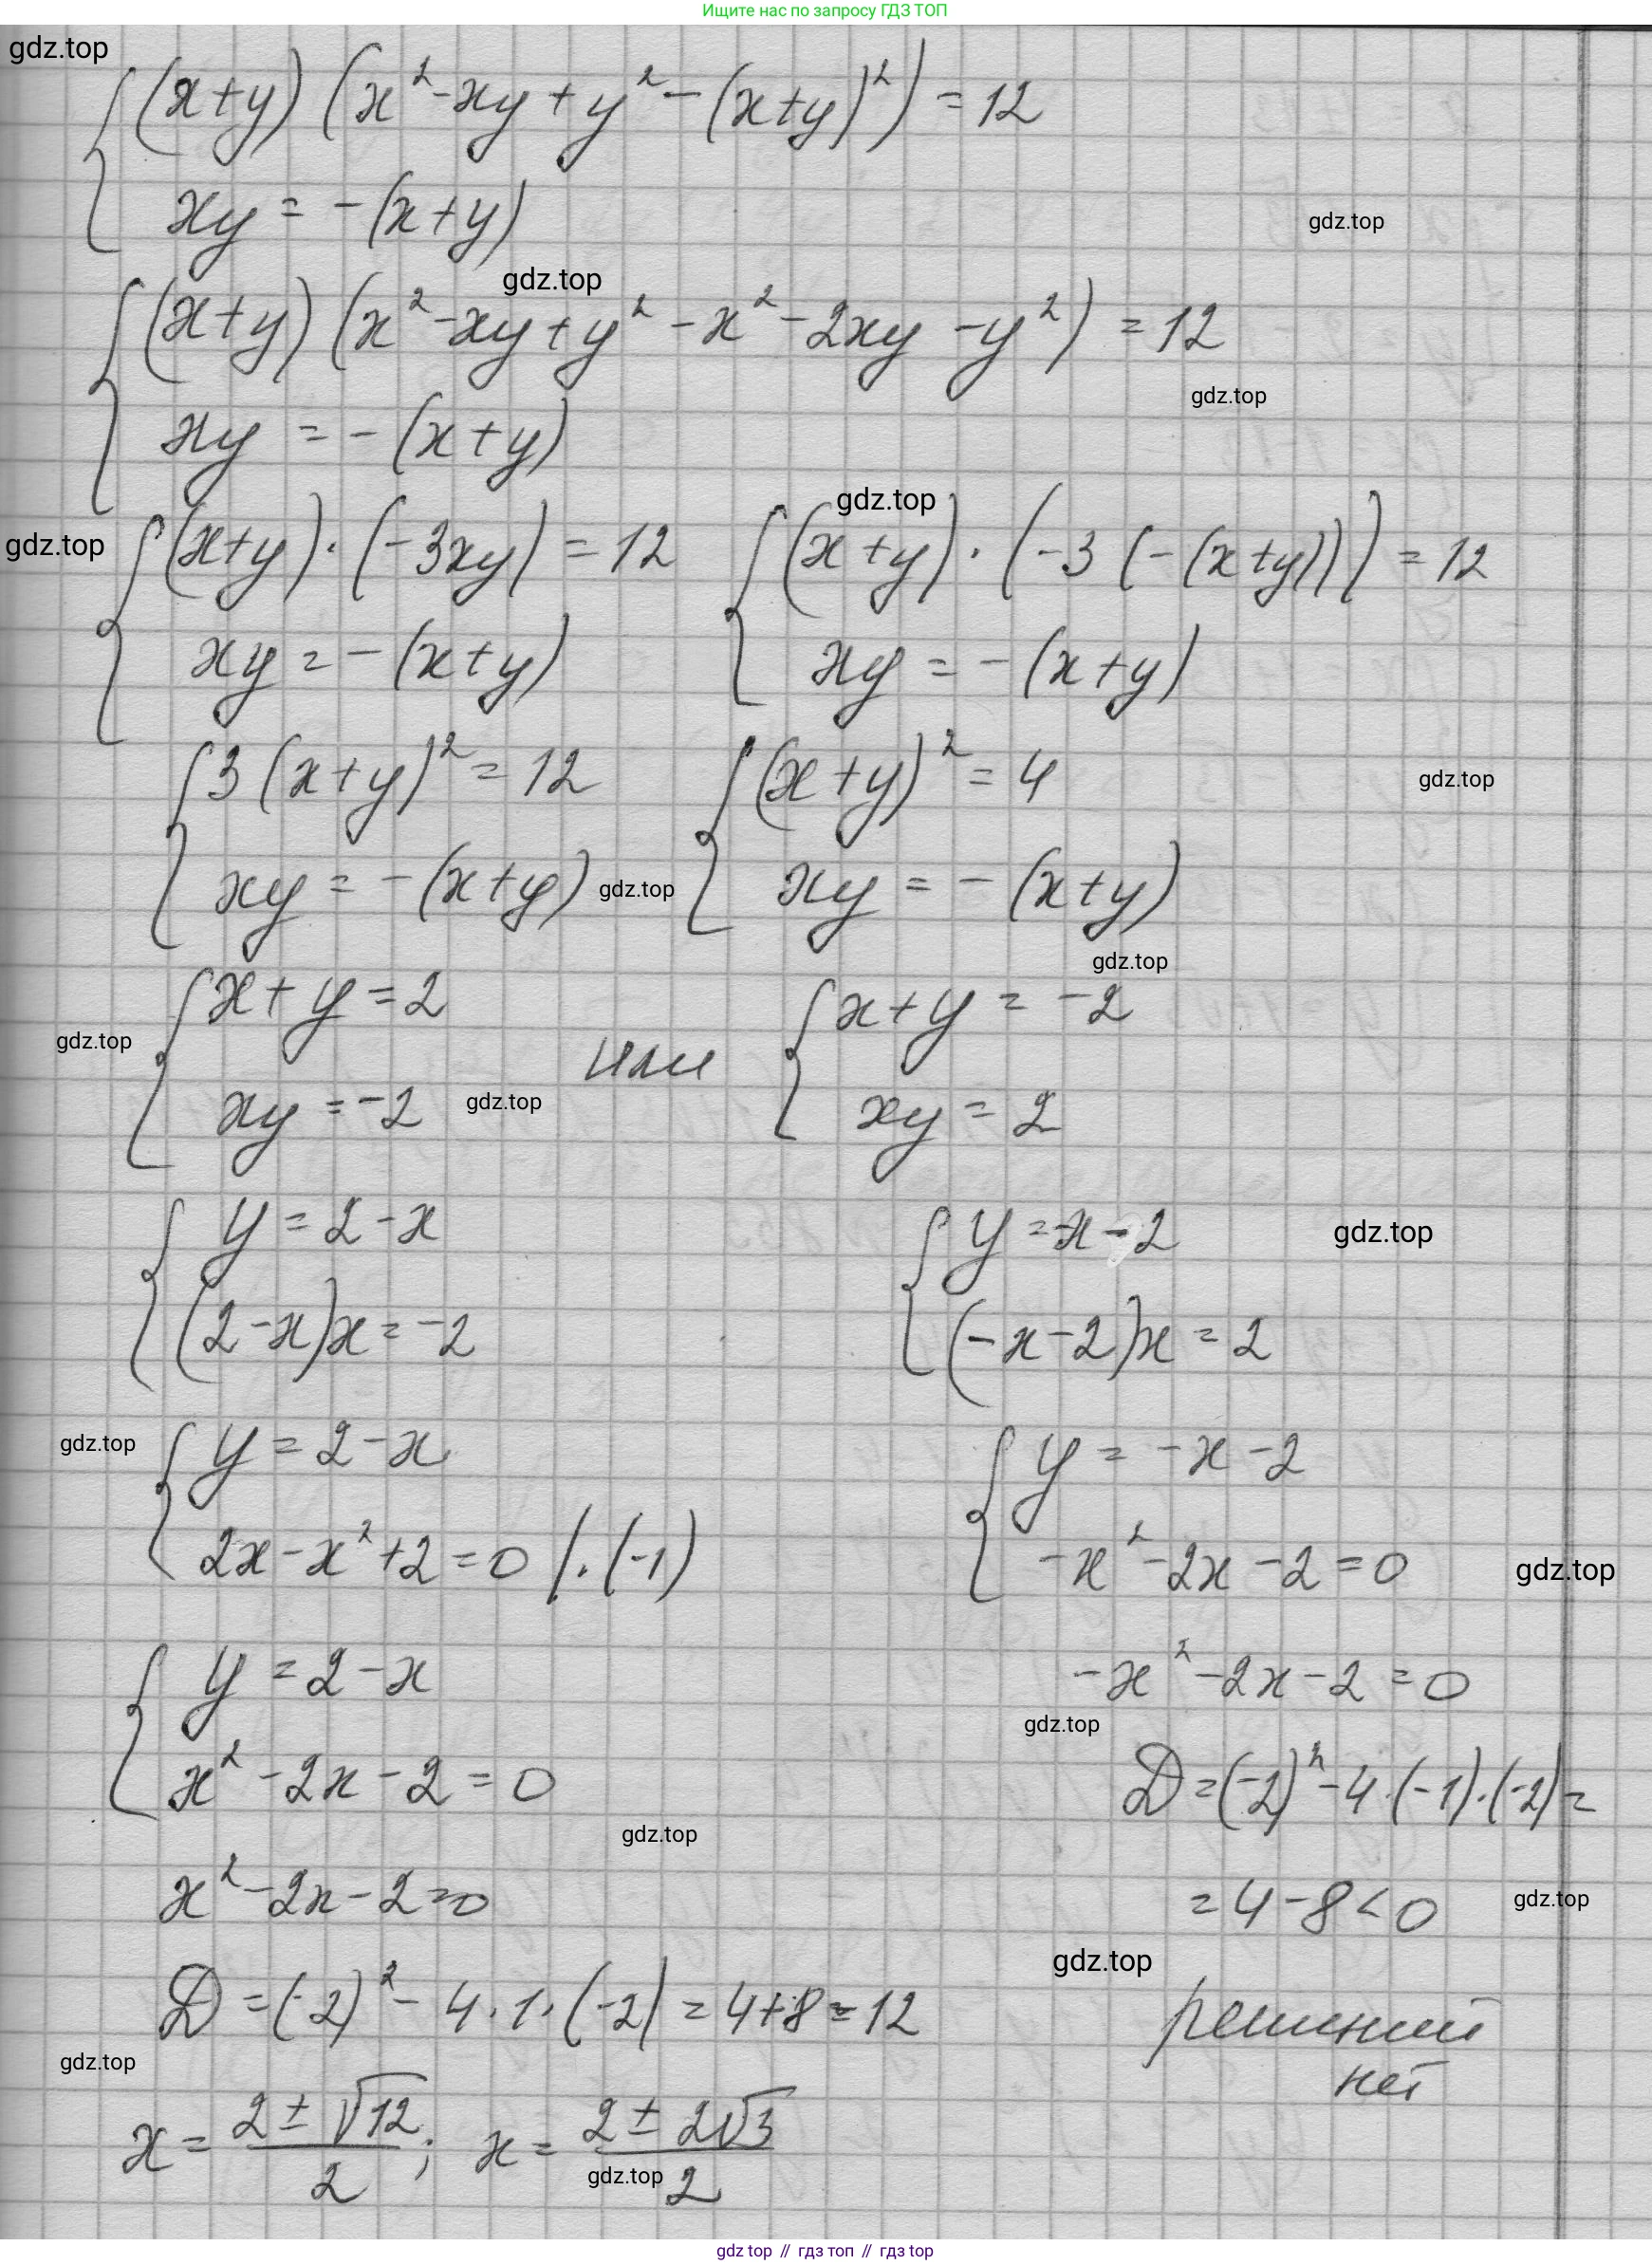 Ищите нас по запросу ГДЗ ТОП
gdz.top
(x+y)(x²-xy+y²-(x+y)²)=12
xy=-(x+y)
gdz.top
gdz.top
(x+y)(x²-xy+y²-x²-2xy-y²)=12
gdz.top
xy=-(x+y)
gdz.top
gdz.top
(x+y)·(-3xy)=12 (x+y)·(-3(-(x+y)))=12
xy=-(x+y) xy=-(x+y)
3(x+y)²=12 (x+y)²=4
gdz.top
xy=-(x+y) gdz.top xy=-(x+y)
gdz.top
x+y=2 x+y=-2
gdz.top или
xy=-2 gdz.top xy=2
y=2-x y=-x-2 gdz.top
(2-x)x=-2 (-x-2)x=2
gdz.top y=2-x y=-x-2
2x-x²+2=0 |·(-1) -x²-2x-2=0 gdz.top
y=2-x -x²-2x-2=0
gdz.top
x²-2x-2=0 D=(-2)²-4·(-1)·(-2)=
gdz.top
x²-2x-2=0 =4-8<0 gdz.top
gdz.top
D=(-2)²-4·1·(-2)=4+8=12 решений
gdz.top нет
x=(2±√12)/2; x=(2±2√3)/2
gdz.top
gdz top // гдз топ // гдз top